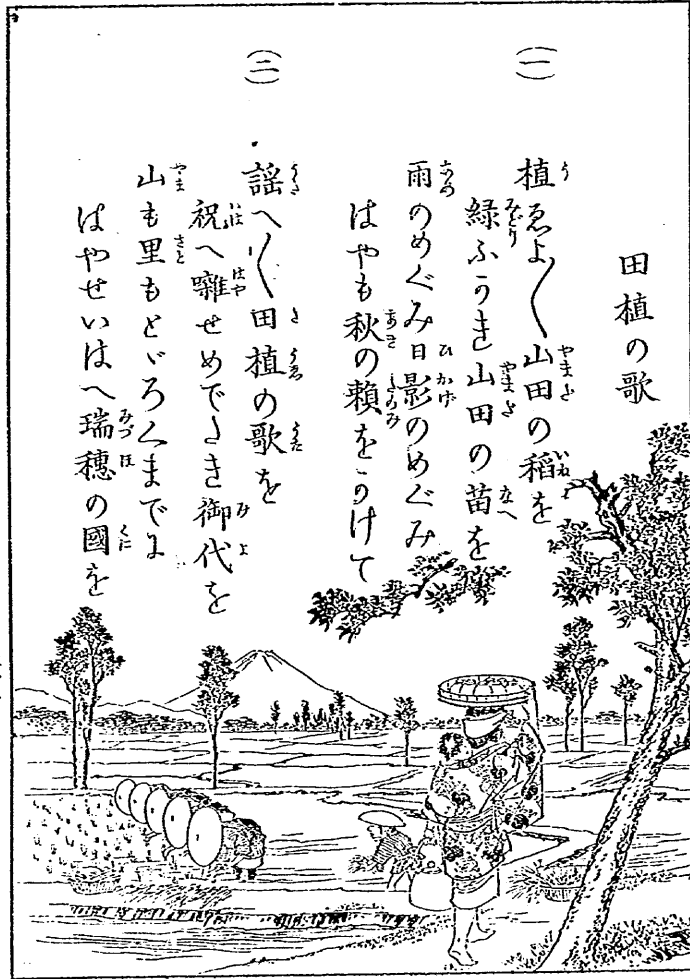 田植の歌
(一)
植ゑよ〱山田の稻を
緑ふかき山田の苗を
雨のめぐみ日影のめぐみ
はやも秋の頼をかけて
(二)
謡へ〱田植の歌を
祝へ囃せめでたき御代を
山も里もとゞろくまでに
はやせいはへ瑞穗の國を